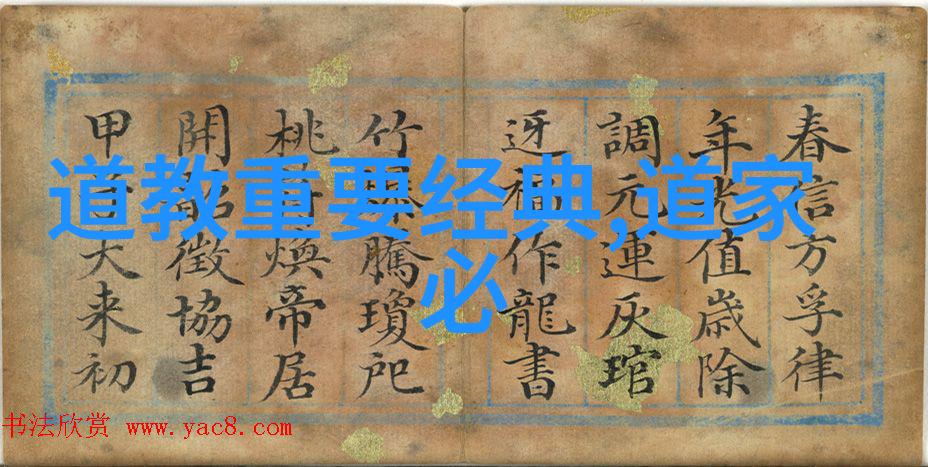 道教重要经典,道家
必
春信方孚律
年光值歲除
調元連灰琯
迓福作龍書
竹騰瓊戺
桃煥帝居
開韶徵協吉
甲大来初
书法欣赏 www.yac8.com